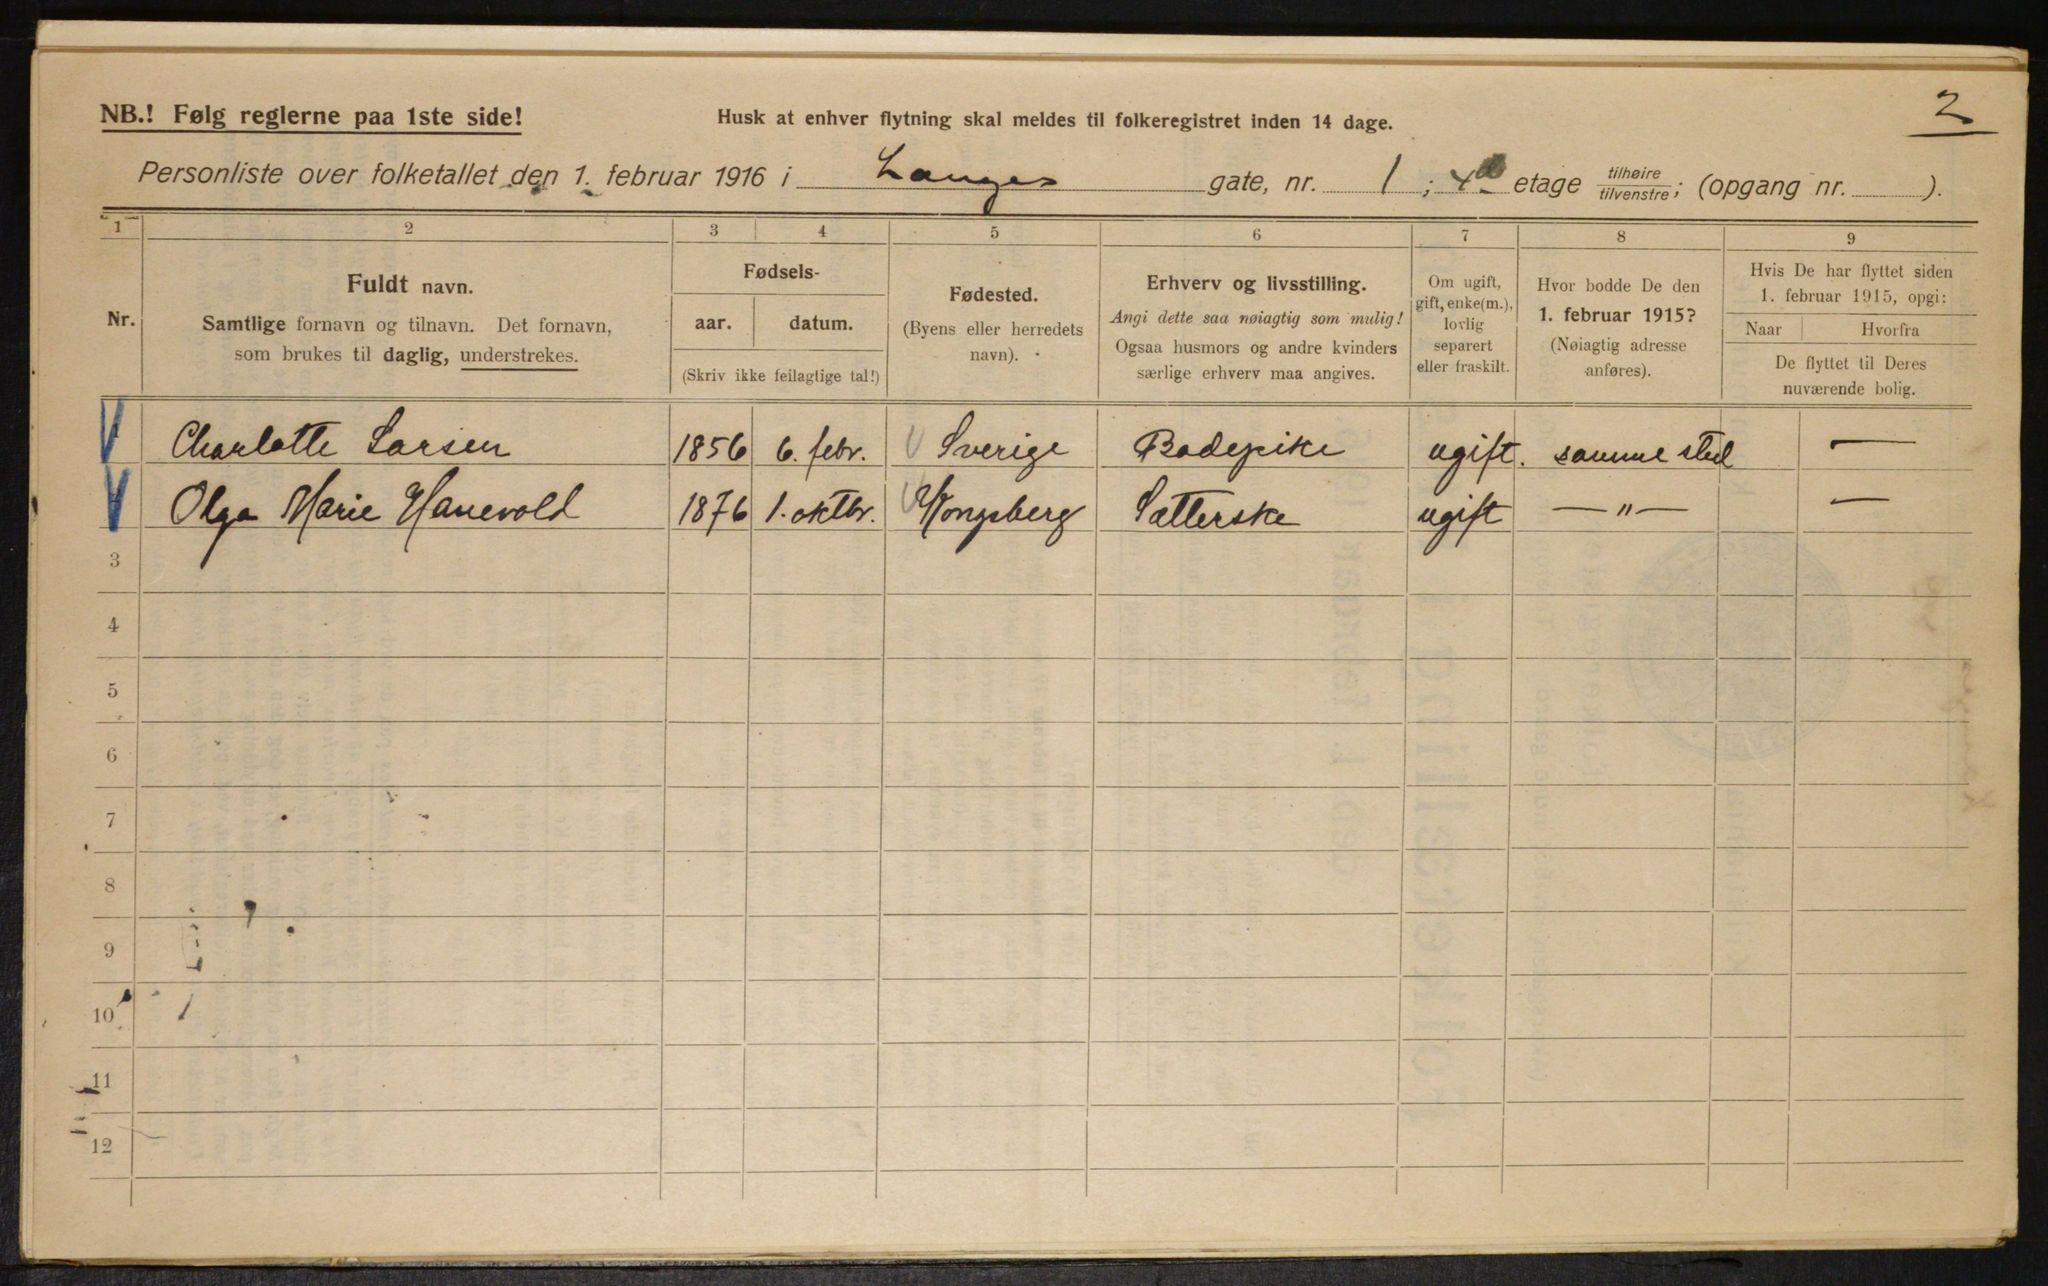 2
NB.! Følg reglerne paa 1ste side!
Husk at enhver flytning skal meldes til folkeregistret inden 14 dage.
Personliste over folketallet den 1. februar 1916 i Langes gate, nr. 1; 4de etage tilhøire tilvenstre; (opgang nr. ).
1 2 3 4 5 6 7 8 9
Nr.
Fuldt navn.
Samtlige fornavn og tilnavn. Det fornavn,
som brukes til daglig, understrekes.
Fødsels-
aar. datum.
(Skriv ikke feilagtige tal!)
Fødested.
(Byens eller herredets
navn).
Erhverv og livsstilling.
Angi dette saa nøiagtig som mulig!
Ogsaa husmors og andre kvinders
særlige erhverv maa angives.
Om ugift,
gift, enke(m.),
lovlig
separert
eller fraskilt.
Hvor bodde De den
1. februar 1915?
(Nøiagtig adresse
anføres).
Hvis De har flyttet siden
1. februar 1915, opgi:
Naar Hvorfra
De flyttet til Deres
nuværende bolig.
Charlotte Larsen 1856 6. febr. Sverige Badepike ugift. samme sted —
Olga Marie Hanevold 1876 1. oktbr. Kongsberg Sætterske ugift —"— —
3
4
5
6
7
8
9
10
11
12